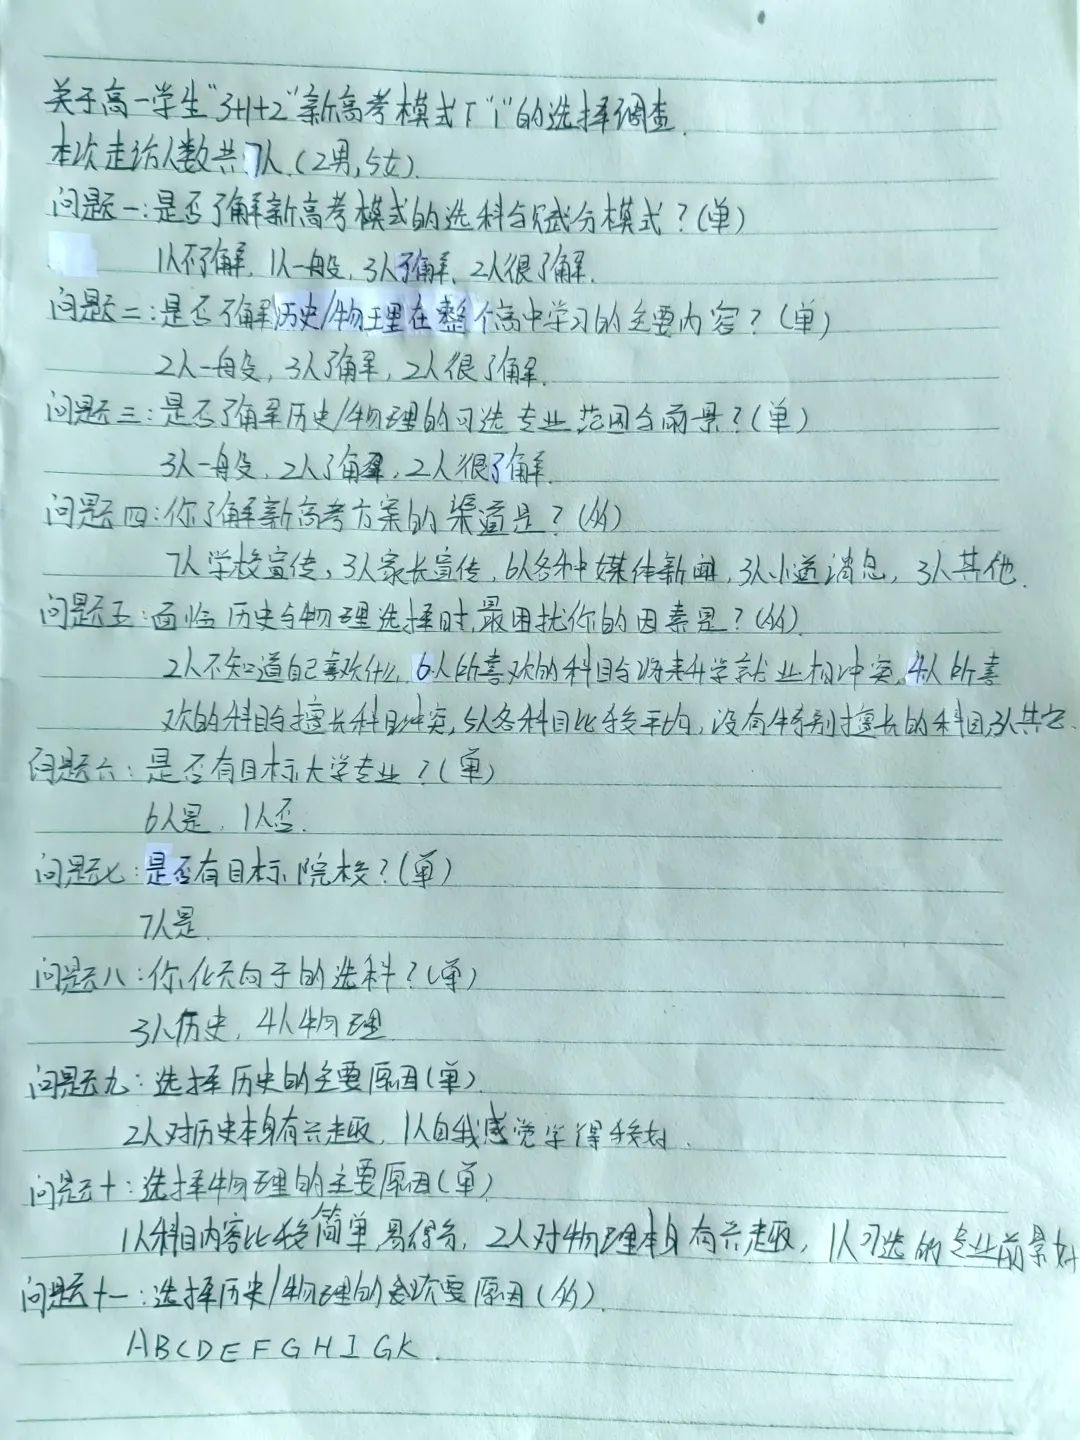 关于高一学生“3+1+2”新高考模式下“1”的选择调查.
本次走访人数共7人.(2男,5女).
问题一:是否了解新高考模式的选科与赋分模式?(单)
1人不了解, 1人一般, 3人了解, 2人很了解.
问题二:是否了解历史/物理在整个高中学习的主要内容?(单)
2人一般, 3人了解, 2人很了解.
问题三:是否了解历史/物理的可选专业范围与前景?(单)
3人一般, 2人了解, 2人很了解.
问题四:你了解新高考方案的渠道是?(多)
7人学校宣传, 3人家长宣传, 6人各种媒体新闻, 3人小道消息, 3人其他.
问题五:面临历史与物理选择时,最困扰你的因素是?(多).
2人不知道自己喜欢什么, 6人所喜欢的科目与将来升学就业相冲突, 4人所喜
欢的科目与擅长科目冲突, 5人各科目比较平均, 没有特别擅长的科目,3人其它.
问题六:是否有目标大学专业?(单)
6人是, 1人否.
问题七:是否有目标院校?(单)
7人是.
问题八:你优先向于的选科?(单)
3人历史, 4人物理
问题九:选择历史的主要原因(单).
2人对历史本身有兴趣, 1人自我感觉学得较好.
问题十:选择物理的主要原因(单)
1人科目内容比较简单,易得分, 2人对物理本身有兴趣, 1人可选的专业前景好
问题十一:选择历史/物理的次要原因(多).
ABCDEFGHIGK.